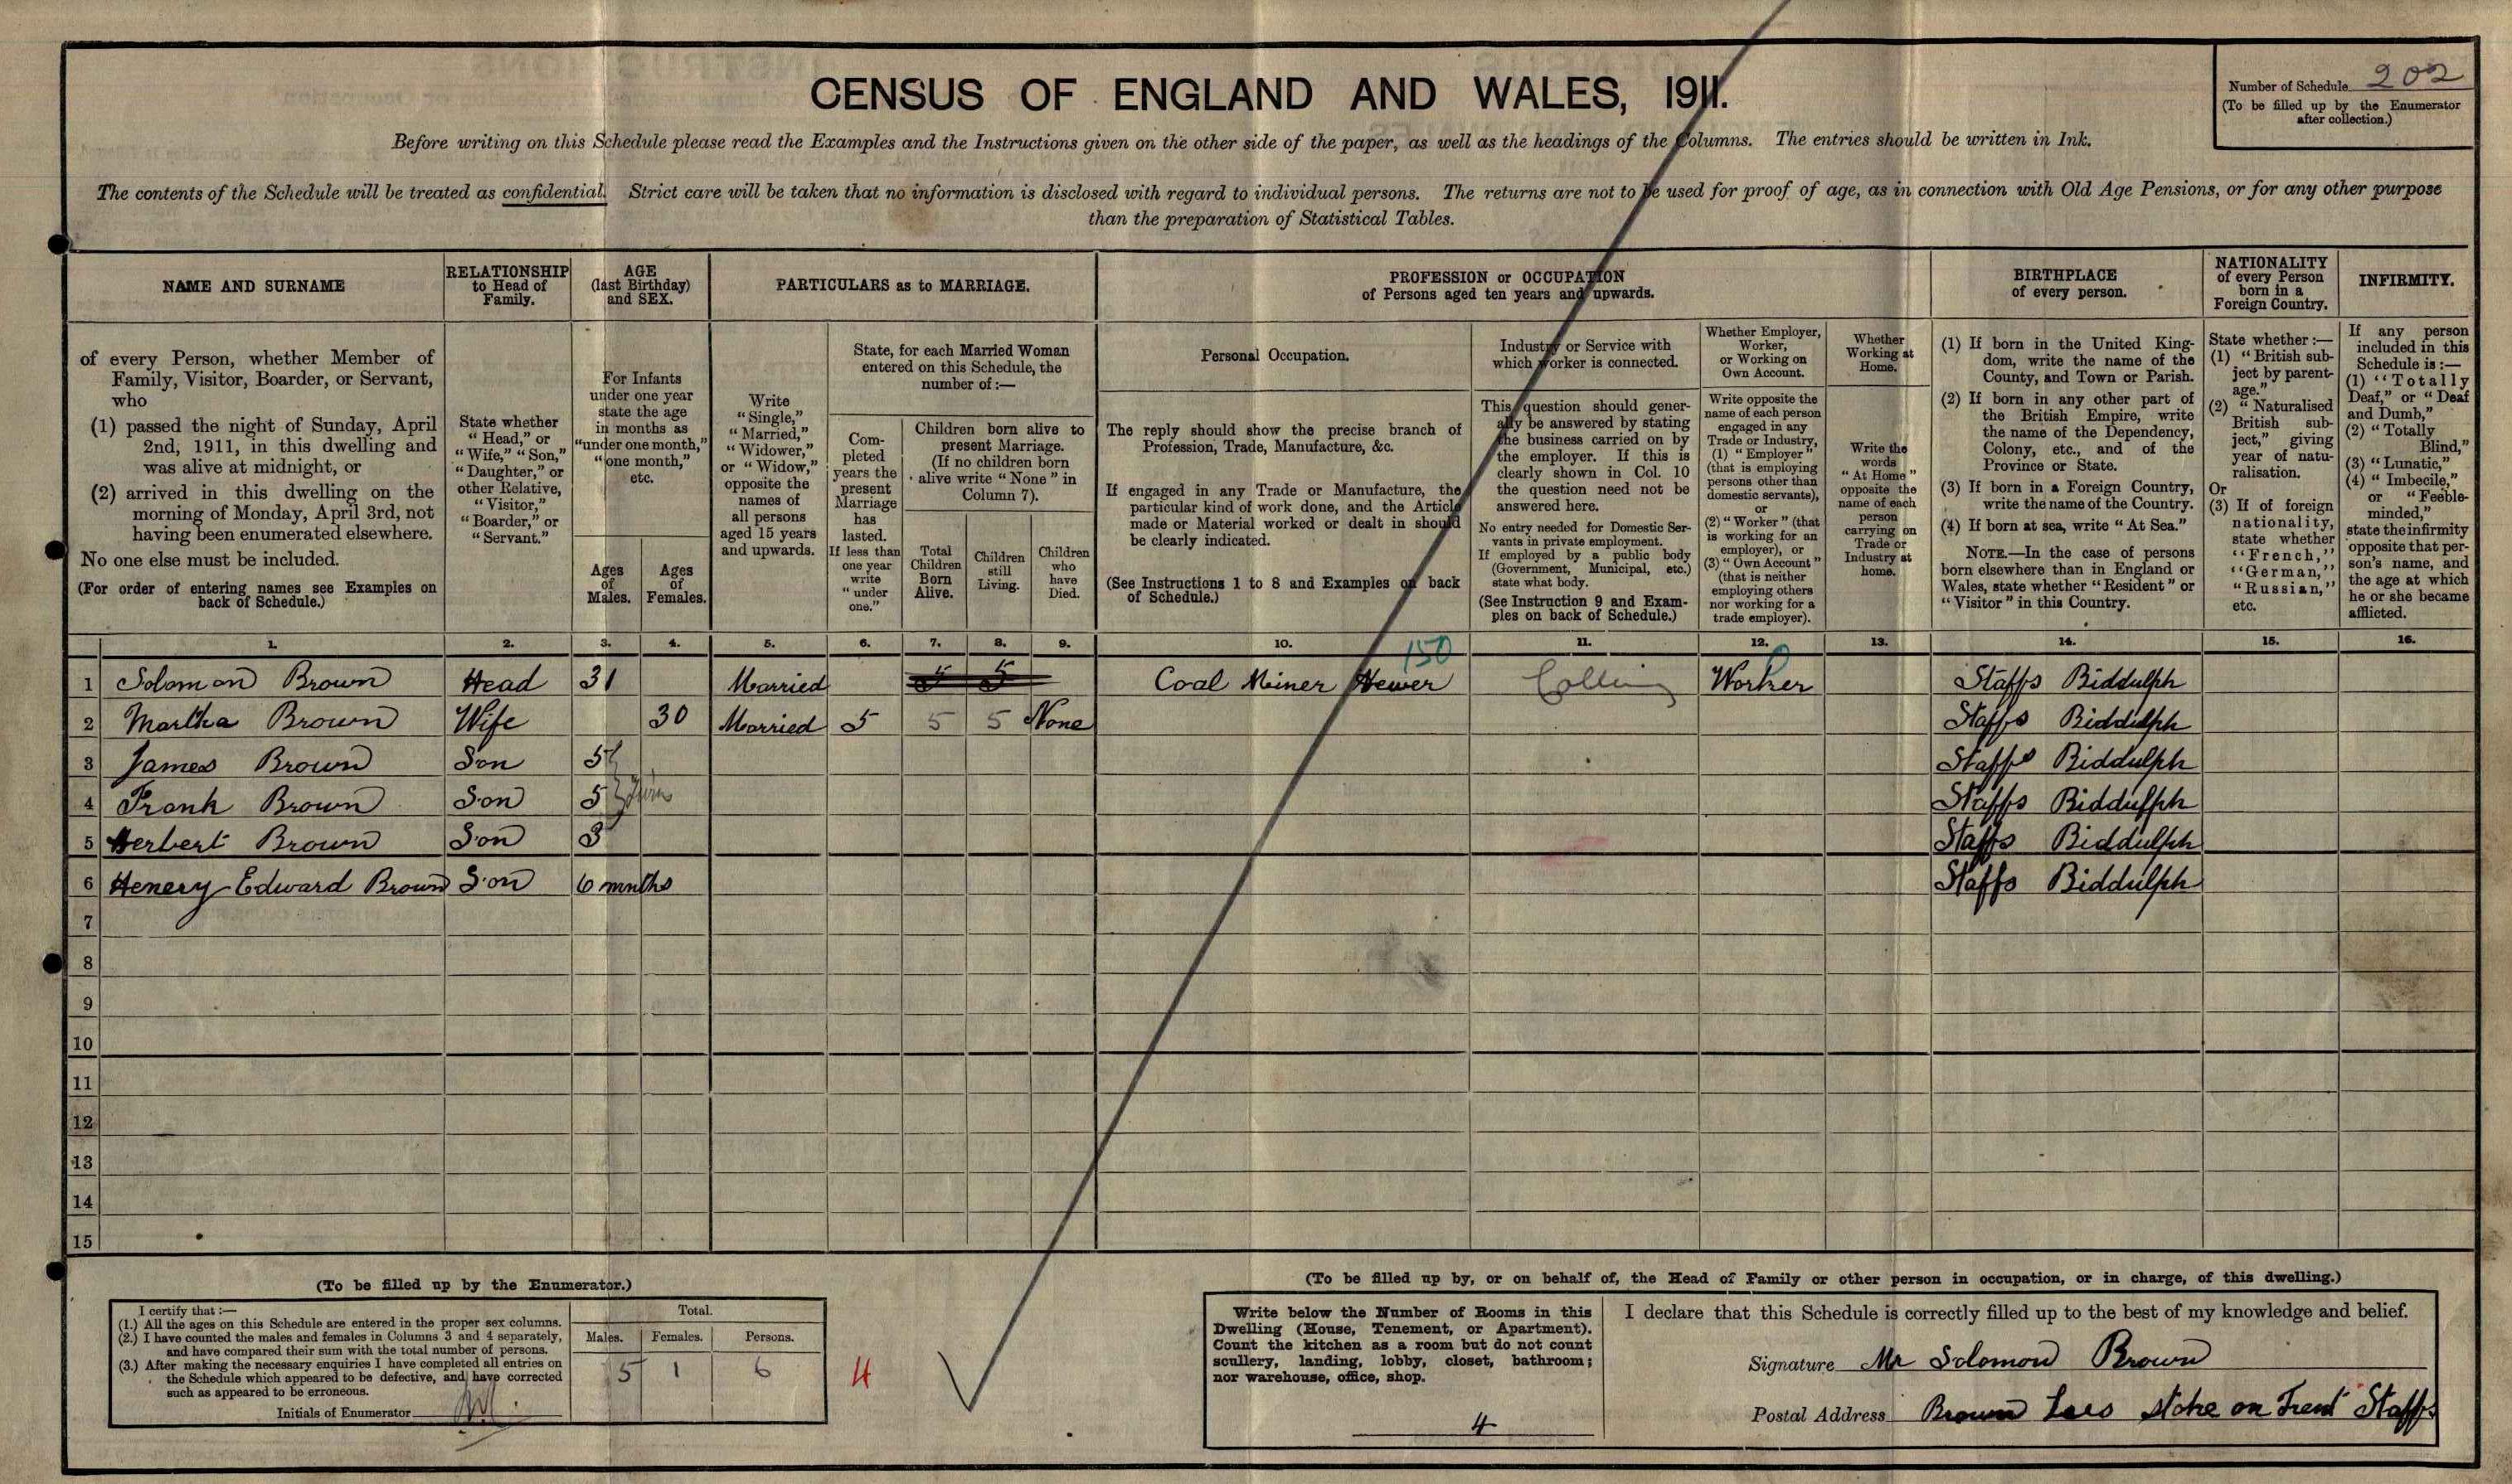 CENSUS OF ENGLAND AND WALES, 1911.
Number of Schedule 202
(To be filled up by the Enumerator
after collection.)
Before writing on this Schedule please read the Examples and the Instructions given on the other side of the paper, as well as the headings of the Columns. The entries should be written in Ink.
The contents of the Schedule will be treated as confidential. Strict care will be taken that no information is disclosed with regard to individual persons. The returns are not to be used for proof of age, as in connection with Old Age Pensions, or for any other purpose
than the preparation of Statistical Tables.
NAME AND SURNAME
of every Person, whether Member of
Family, Visitor, Boarder, or Servant,
who
(1) passed the night of Sunday, April
2nd, 1911, in this dwelling and
was alive at midnight, or
(2) arrived in this dwelling on the
morning of Monday, April 3rd, not
having been enumerated elsewhere.
No one else must be included.
(For order of entering names see Examples on
back of Schedule.)
RELATIONSHIP
to Head of
Family.
State whether
"Head," or
"Wife," "Son,"
"Daughter," or
other Relative,
"Visitor,"
"Boarder," or
"Servant."
AGE
(last Birthday)
and SEX.
For Infants
under one year
state the age
in months as
"under one month,"
"one month,"
etc.
Ages
of
Males.
Ages
of
Females.
PARTICULARS as to MARRIAGE.
Write
"Single,"
"Married,"
"Widower,"
or "Widow,"
opposite the
names of
all persons
aged 15 years
and upwards.
State, for each Married Woman
entered on this Schedule, the
number of:—
Com-
pleted
years the
present
Marriage
has
lasted.
If less than
one year
write
"under
one."
Children born alive to
present Marriage.
(If no children born
alive write "None" in
Column 7).
Total
Children
Born
Alive.
Children
still
Living.
Children
who
have
Died.
PROFESSION or OCCUPATION
of Persons aged ten years and upwards.
Personal Occupation.
The reply should show the precise branch of
Profession, Trade, Manufacture, &c.
If engaged in any Trade or Manufacture, the
particular kind of work done, and the Article
made or Material worked or dealt in should
be clearly indicated.
(See Instructions 1 to 8 and Examples on back
of Schedule.)
Industry or Service with
which worker is connected.
This question should gener-
ally be answered by stating
the business carried on by
the employer. If this is
clearly shown in Col. 10
the question need not be
answered here.
No entry needed for Domestic Ser-
vants in private employment.
If employed by a public body
(Government, Municipal, etc.)
state what body.
(See Instruction 9 and Exam-
ples on back of Schedule.)
Whether Employer,
Worker,
or Working on
Own Account.
Write opposite the
name of each person
engaged in any
Trade or Industry,
(1) "Employer"
(that is employing
persons other than
domestic servants),
or
(2) "Worker" (that
is working for an
employer), or
(3) "Own Account"
(that is neither
employing others
nor working for a
trade employer).
Whether
Working at
Home.
Write the
words
"At Home"
opposite the
name of each
person
carrying on
Trade or
Industry at
home.
BIRTHPLACE
of every person.
(1) If born in the United King-
dom, write the name of the
County, and Town or Parish.
(2) If born in any other part of
the British Empire, write
the name of the Dependency,
Colony, etc., and of the
Province or State.
(3) If born in a Foreign Country,
write the name of the Country.
(4) If born at sea, write "At Sea."
NOTE.—In the case of persons
born elsewhere than in England or
Wales, state whether "Resident" or
"Visitor" in this Country.
NATIONALITY
of every Person
born in a
Foreign Country.
State whether:—
(1) "British sub-
ject by parent-
age."
(2) "Naturalised
British sub-
ject," giving
year of natu-
ralisation.
Or
(3) If of foreign
nationality,
state whether
"French,"
"German,"
"Russian,"
etc.
INFIRMITY.
If any person
included in this
Schedule is:—
(1) "Totally
Deaf," or "Deaf
and Dumb,"
(2) "Totally
Blind,"
(3) "Lunatic,"
(4) "Imbecile,"
or "Feeble-
minded,"
state the infirmity
opposite that per-
son's name, and
the age at which
he or she became
afflicted.
1. 2. 3. 4. 5. 6. 7. 8. 9. 10. 11. 12. 13. 14. 15. 16.
150
1 Solomon Brown Head 31 Married 5 5 Coal Miner Hewer Worker Staffs Biddulph
2 Martha Brown Wife 30 Married 5 5 5 None Staffs Biddulph
3 James Brown Son 5 Staffs Biddulph
4 Frank Brown Son 5 Staffs Biddulph
5 Herbert Brown Son 3 Staffs Biddulph
6 Henery Edward Brown Son 6 mnths Staffs Biddulph
7
8
9
10
11
12
13
14
15
(To be filled up by the Enumerator.)
I certify that:—
(1.) All the ages on this Schedule are entered in the proper sex columns.
(2.) I have counted the males and females in Columns 3 and 4 separately,
and have compared their sum with the total number of persons.
(3.) After making the necessary enquiries I have completed all entries on
the Schedule which appeared to be defective, and have corrected
such as appeared to be erroneous.
Initials of Enumerator
Total.
Males. Females. Persons.
5 1 6
4
(To be filled up by, or on behalf of, the Head of Family or other person in occupation, or in charge, of this dwelling.)
Write below the Number of Rooms in this
Dwelling (House, Tenement, or Apartment).
Count the kitchen as a room but do not count
scullery, landing, lobby, closet, bathroom;
nor warehouse, office, shop.
4
I declare that this Schedule is correctly filled up to the best of my knowledge and belief.
Signature Mr Solomon Brown
Postal Address Brown Lees Stoke on Trent Staffs